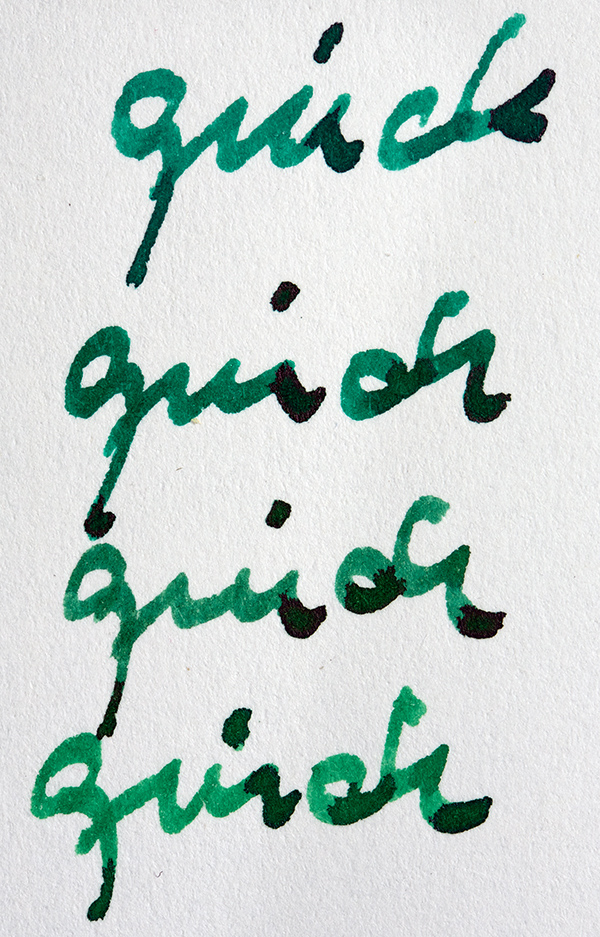 quick
quick
quick
quick